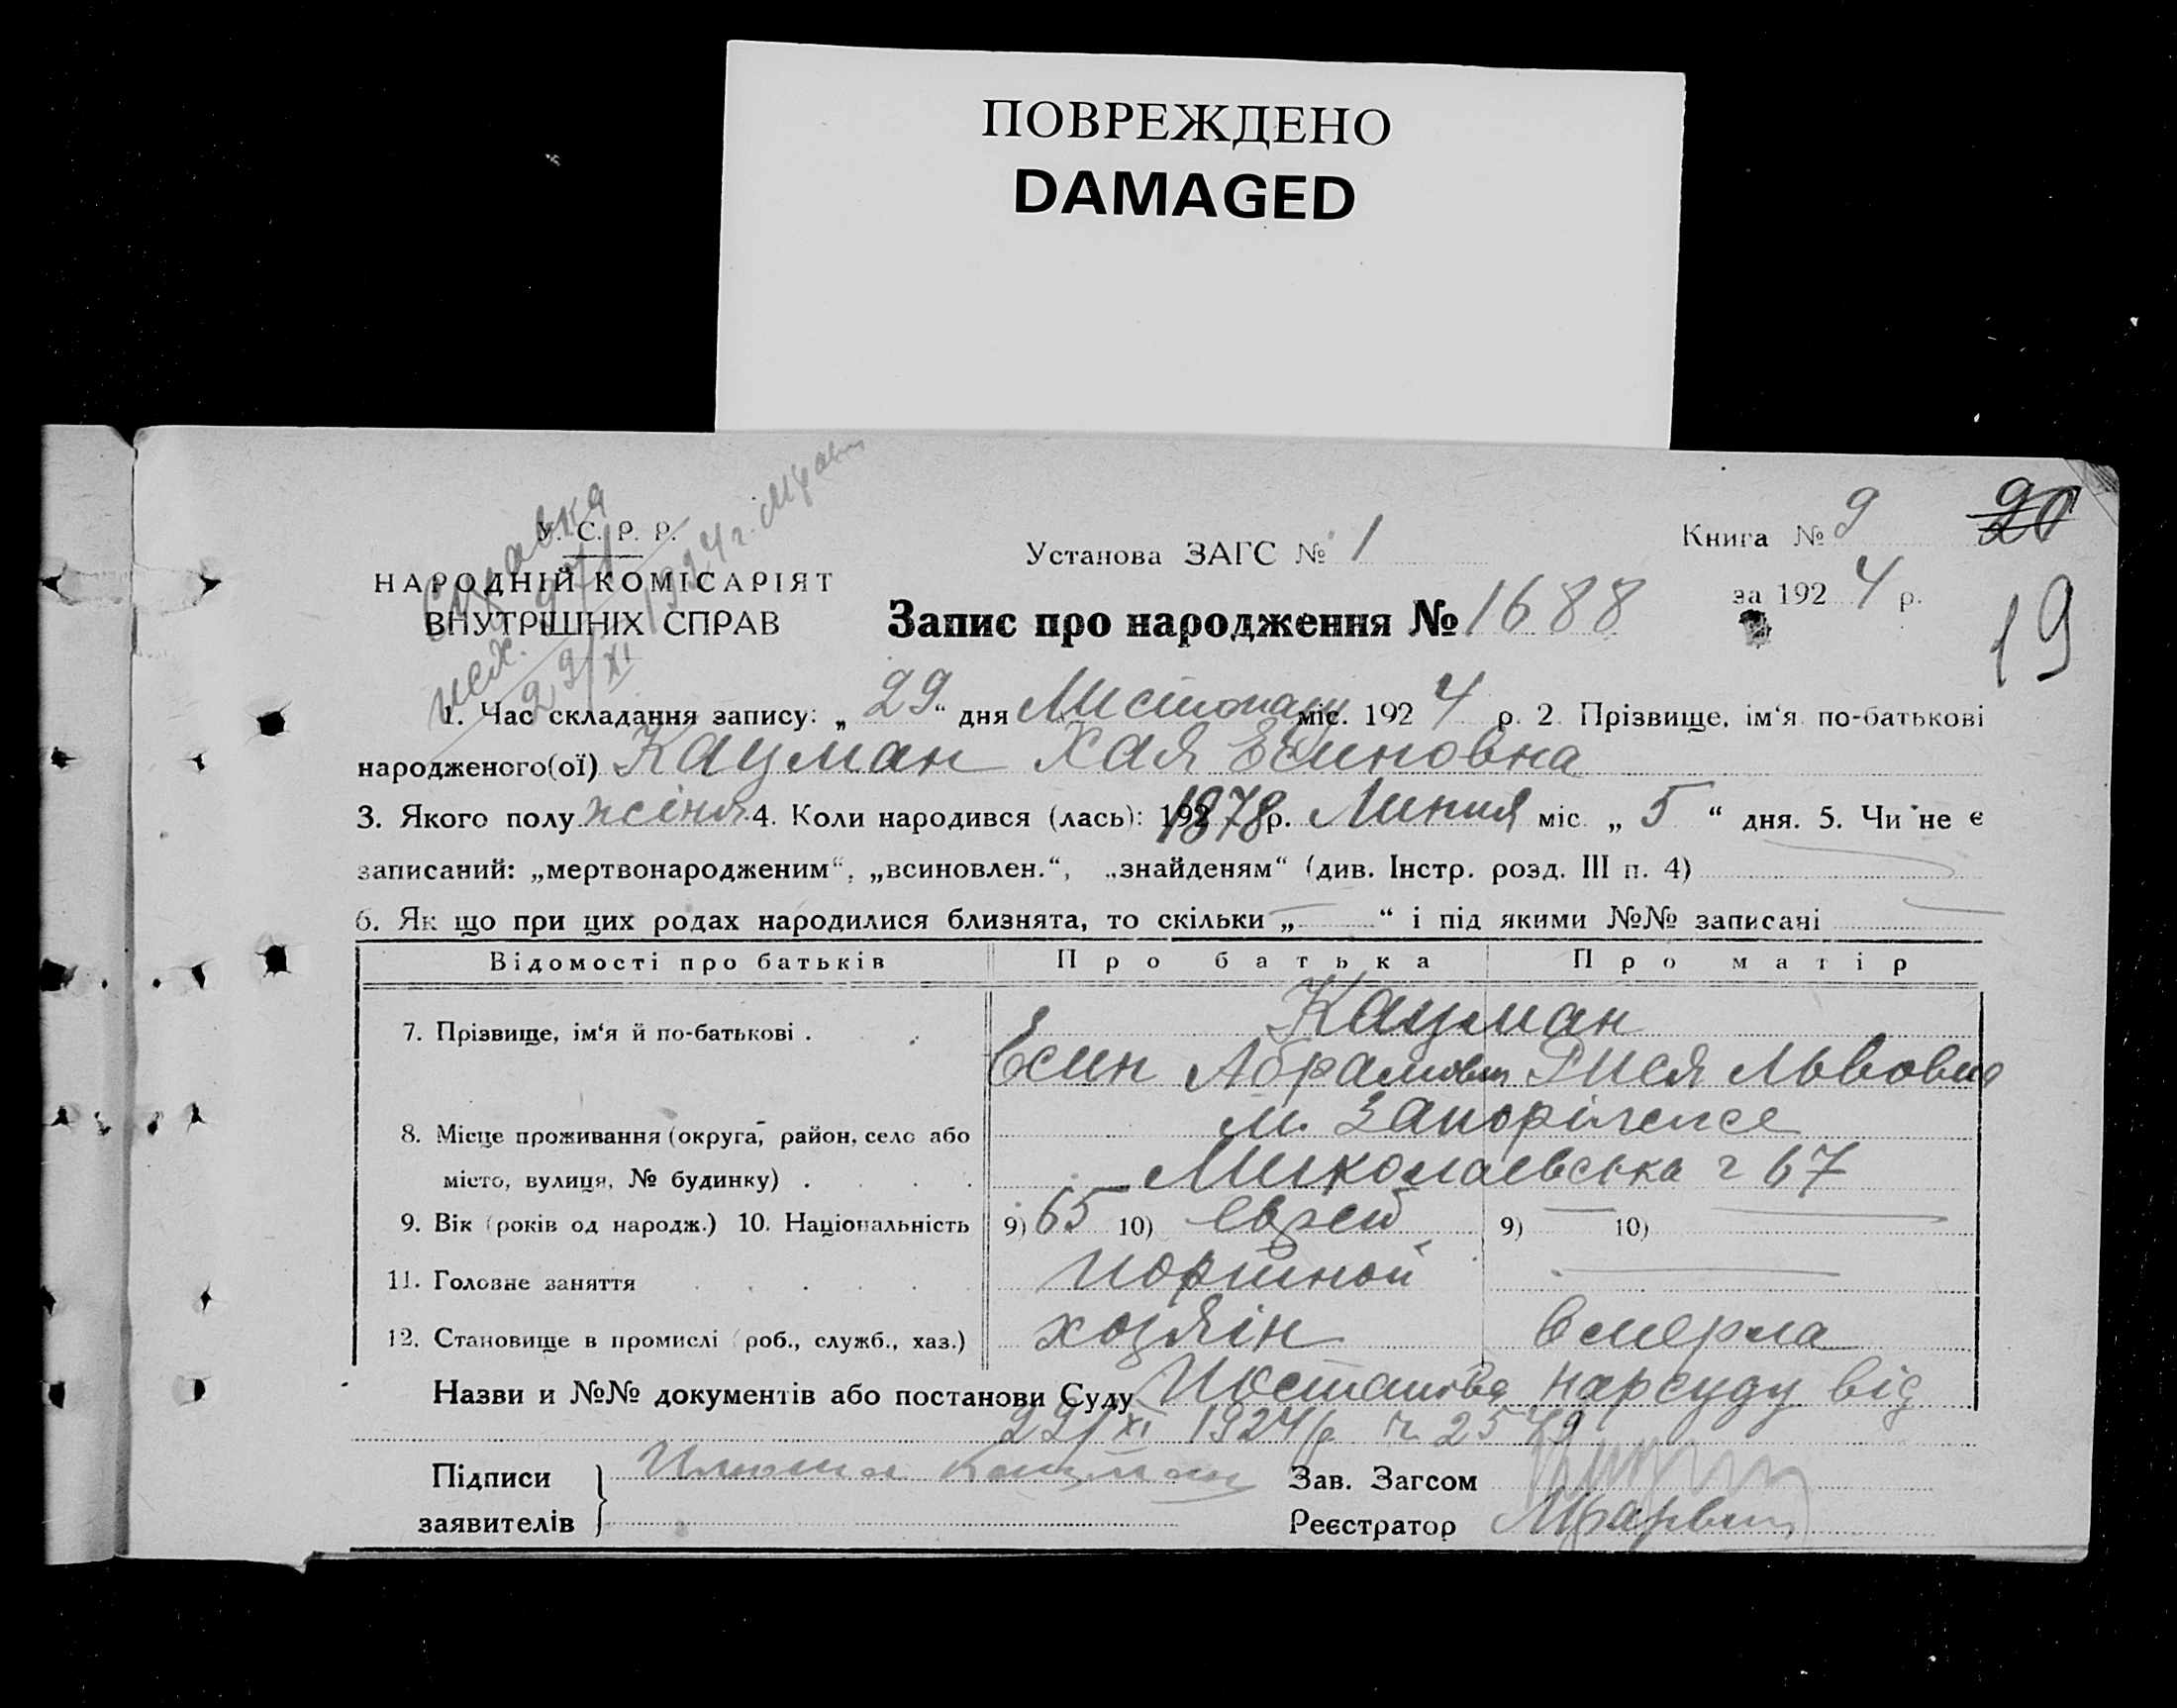 ПОВРЕЖДЕНО
DAMAGED
Справка
У. С. Р. Р.
НАРОДНІЙ КОМІСАРІЯТ
ВНУТРІШНІХ СПРАВ
Установа ЗАГС № 1
Книга № 9
20
за 1924 р.
19
Запис про народження № 1688
1. Час складання запису: „ 29 “ дня Листопаду міс. 1924 р. 2. Прізвище, ім‘я по-батькові
народженого(ої) Кацман Хая Есиновна
3. Якого полу жіноч. 4. Коли народився (лась): 1878 р. Липня міс. „ 5 “ дня. 5. Чи не є
записаний: „мертвонародженим“, „всиновлен.“, „знайденям“ (див. Інстр. розд. III п. 4)
6. Як що при цих родах народилися близнята, то скільки „ — “ і під якими №№ записані
Відомості про батьків Про батька Про матір
Кацман
7. Прізвище, ім‘я й по-батькові . Есин Абрамович Рися Львовна
8. Місце проживання (округа, район, село або м. Запоріжжє
місто, вулиця, № будинку) . Миколаевська 67
9. Вік (років од народж.) 10. Національність 9) 65 10) еврей 9) — 10) —
11. Головне заняття портной —
12. Становище в промислі (роб., служб., хаз.) хозяін вмерла
Назви и №№ документів або постанови Суду Постанова нарсуду від
22/XI 1924 р. ч. 2579
Підписи Кацман Зав. Загсом
заявителів Реєстратор